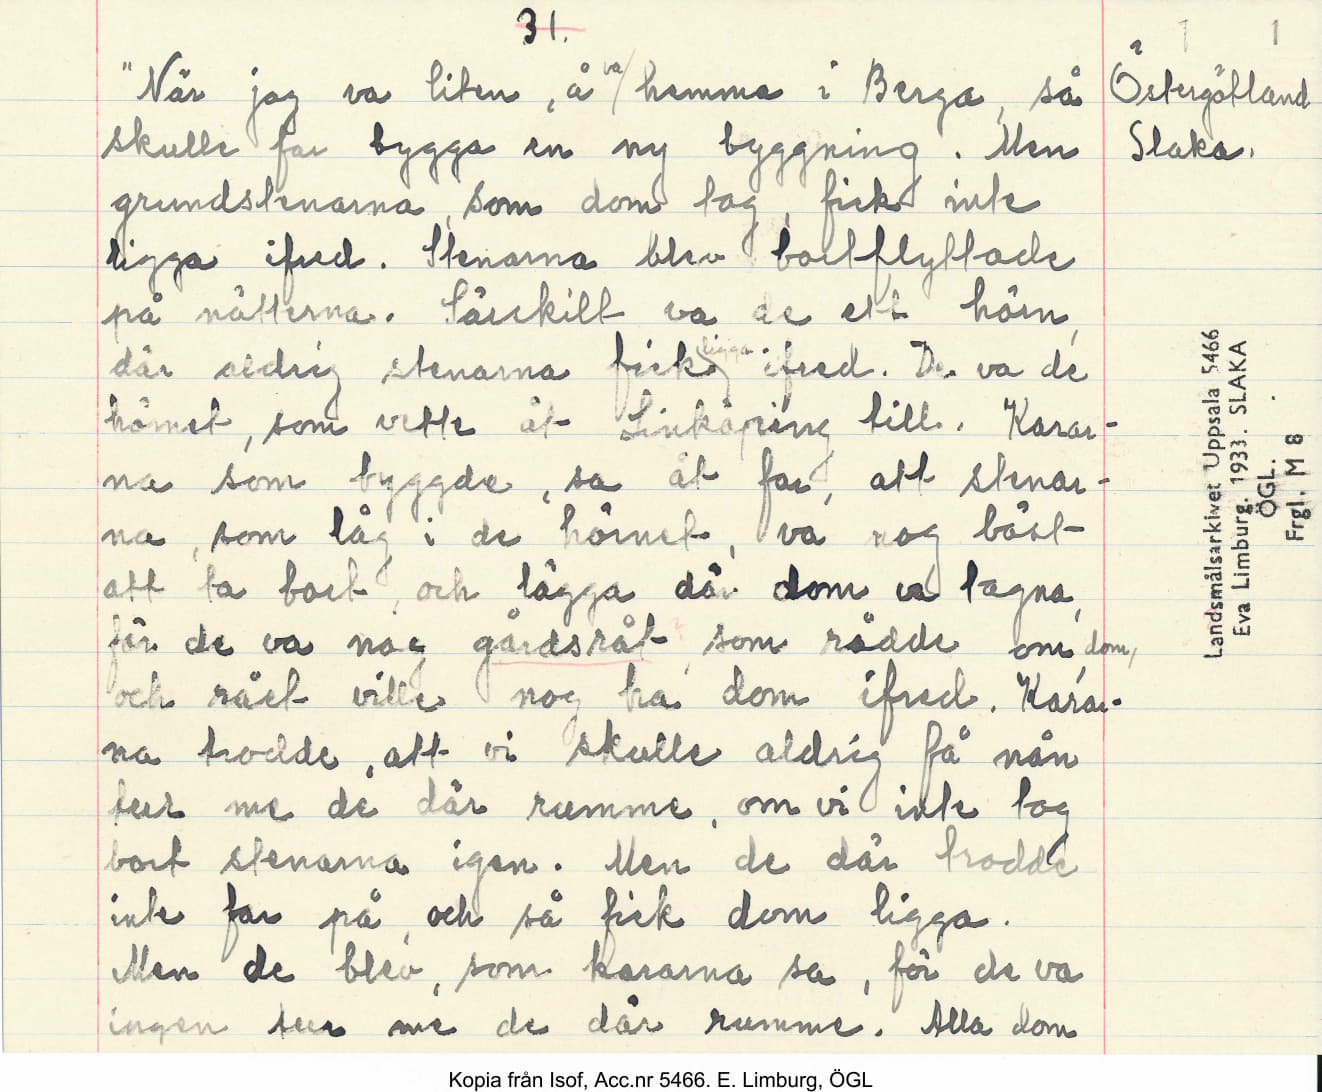 31.
1 1
"När jag va liten, å va hemma i Berga, så
skulle far bygga en ny byggning. Men
grundstenarna, som dom tog, fick inte
ligga ifred. Stenarna blev bortflyttade
på nätterna. Särskilt va de ett hörn,
där aldrig stenarna fick ligga ifred. De va de
hörnet, som vette åt Linköping till. Karar-
na som byggde, sa åt far, att stenar-
na, som låg i de hörnet, va nog bäst
att ta bort, och lägga där dom va tagna,
för de va nog gårdsråt ?, som rådde om dom,
och rået ville nog ha dom ifred. Karar-
na trodde, att vi skulle aldrig få nån
tur me de där rumme, om vi inte tog
bort stenarna igen. Men de där trodde
inte far på, och så fick dom ligga.
Men de blev, som kararna sa, för de va
ingen tur me de där rumme. Alla dom
Östergötland
Slaka.
Landsmålsarkivet Uppsala 5466
Eva Limburg. 1933. SLAKA
ÖGL.
Frgl. M 8
Kopia från Isof, Acc.nr 5466. E. Limburg, ÖGL